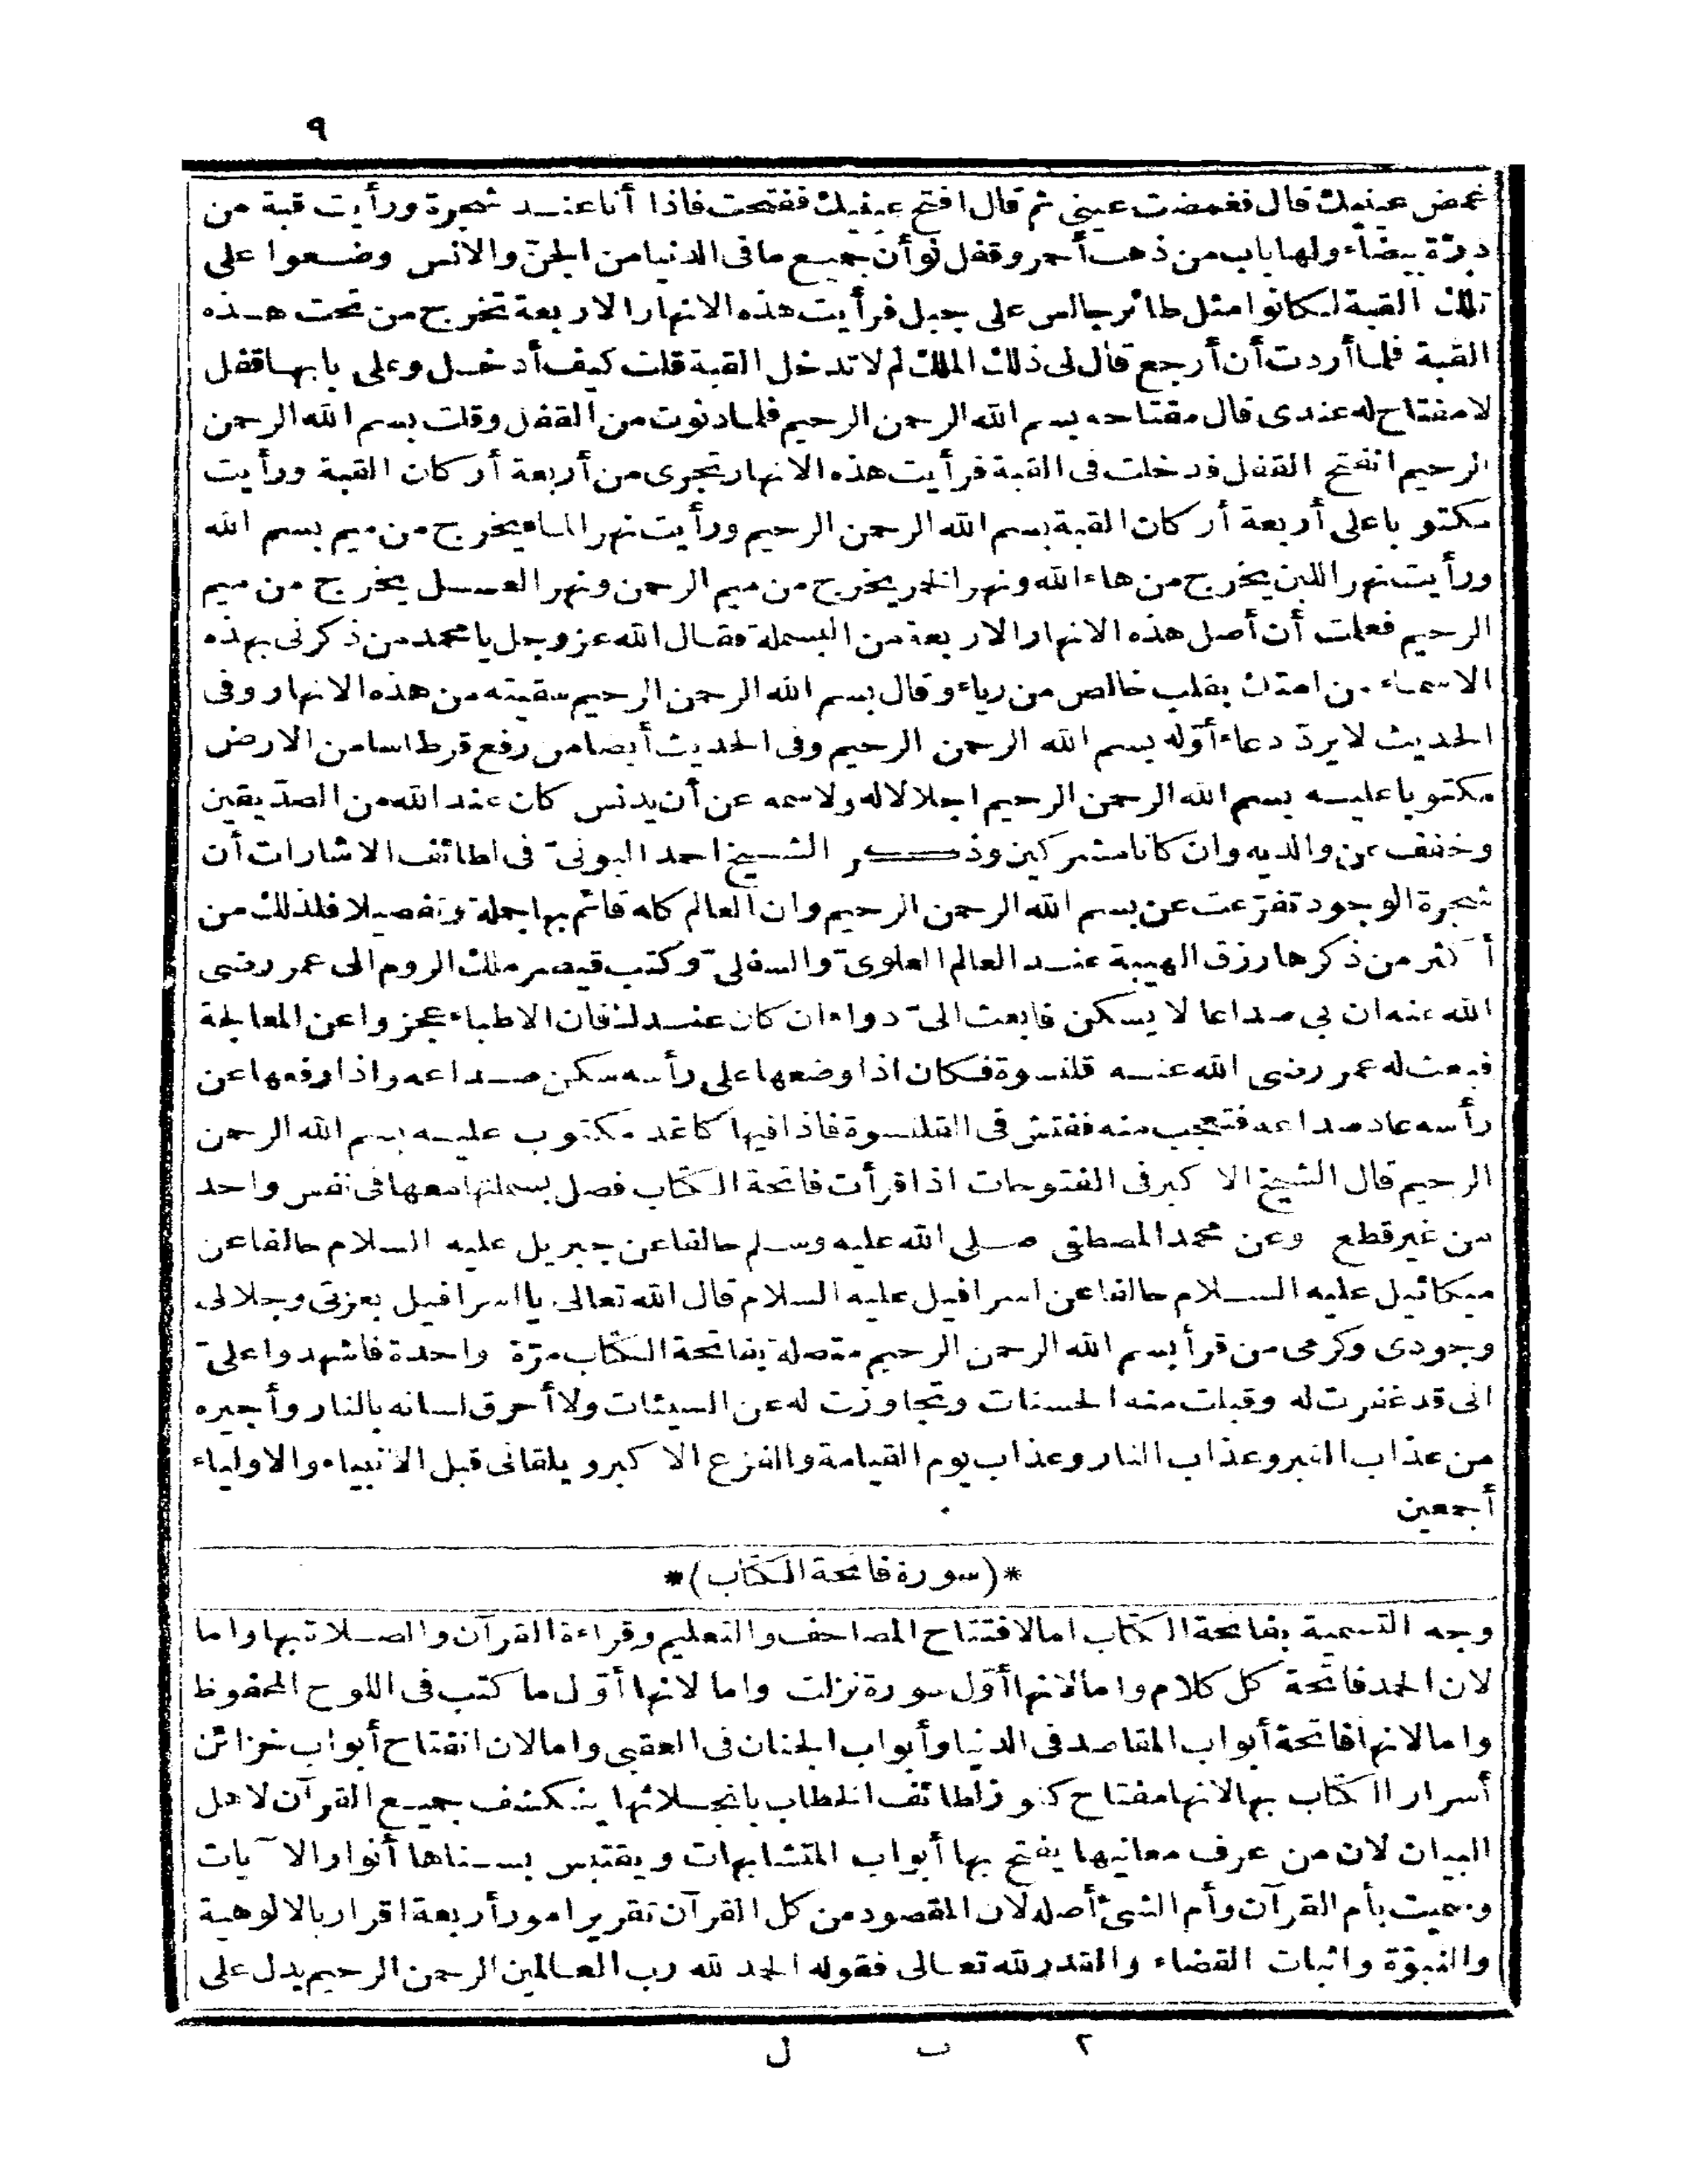 ٩
غمض عينيك قال فغمضت عينى ثم قال افتح عينيك ففتحت فاذا أنا عند شجرة ورأيت قبة من
درّة بيضاء ولها باب من ذهب أحمر وقفل لو أن جميع ما فى الدنيا من الجنّ والانس وضعوا على
تلك القبة لكانوا مثل طائر جالس على جبل فرأيت هذه الانهار الاربعة تخرج من تحت هذه
القبة فلما أردت أن أرجع قال لى ذلك الملك لم لا تدخل القبة قلت كيف أدخل وعلى بابها قفل
لا مفتاح له عندى قال مفتاحه بسم الله الرحمن الرحيم فلما دنوت من القفل وقلت بسم الله الرحمن
الرحيم انفتح القفل فدخلت فى القبة فرأيت هذه الانهار تجرى من أربعة أركان القبة ورأيت
مكتوبا على أربعة أركان القبة بسم الله الرحمن الرحيم ورأيت نهر الماء يخرج من ميم بسم الله
ورأيت نهر اللبن يخرج من هاء الله ونهر الخمر يخرج من ميم الرحمن ونهر العسل يخرج من ميم
الرحيم فعلمت أن أصل هذه الانهار الاربعة من البسملة فقال الله عز وجل يا محمد من ذكرنى بهذه
الاسماء من امتك بقلب خالص من رياء وقال بسم الله الرحمن الرحيم سقيته من هذه الانهار وفى
الحديث لا يردّ دعاء أوّله بسم الله الرحمن الرحيم وفى الحديث أيضا من رفع قرطاسا من الارض
مكتوبا عليه بسم الله الرحمن الرحيم اجلالا له ولاسمه عن أن يدنس كان عند الله من الصدّيقين
وخفف عن والديه وان كانا مشركين وذكر الشيخ احمد البونىّ فى لطائف الاشارات أن
شجرة الوجود تفرّعت عن بسم الله الرحمن الرحيم وان العالم كله قائم بها جملة وتفصيلا فلذلك من
أكثر من ذكرها رزق الهيبة عند العالم العلوىّ والسفلىّ وكتب قيصر ملك الروم الى عمر رضى
الله عنه ان بى صداعا لا يسكن فابعث الىّ دواء ان كان عندك فان الاطباء عجزوا عن المعالجة
فبعث له عمر رضى الله عنه قلنسوة فكان اذا وضعها على رأسه سكن صداعه واذا رفعها عن
رأسه عاد صداعه فتعجب منه ففتش فى القلنسوة فاذا فيها كاغد مكتوب عليه بسم الله الرحمن
الرحيم قال الشيخ الاكبر فى الفتوحات اذا قرأت فاتحة الكتاب فصل بسملتها معها فى نفس واحد
من غير قطع وعن محمد المصطفى صلى الله عليه وسلم حالفا عن جبريل عليه السلام حالفا عن
ميكائيل عليه السلام حالفا عن اسرافيل عليه السلام قال الله تعالى يا اسرافيل بعزتى وجلالى
وجودى وكرمى من قرأ بسم الله الرحمن الرحيم متصلة بفاتحة الكتاب مرّة واحدة فاشهدوا علىّ
انى قد غفرت له وقبلت منه الحسنات وتجاوزت له عن السيئات ولا أحرق لسانه بالنار وأجيره
من عذاب القبر وعذاب النار وعذاب يوم القيامة والفزع الاكبر ويلقانى قبل الانبياء والاولياء
أجمعين
*(سورة فاتحة الكتاب)*
وجه التسمية بفاتحة الكتاب اما لافتتاح المصاحف والتعليم وقراءة القرآن والصلاة بها واما
لان الحمد فاتحة كل كلام واما لانها أوّل سورة نزلت واما لانها أوّل ما كتب فى اللوح المحفوظ
واما لانها فاتحة أبواب المقاصد فى الدنيا وأبواب الجنان فى العقبى واما لان انفتاح أبواب خزائن
أسرار الكتاب بها لانها مفتاح كنوز لطائف الخطاب بانجلائها ينكشف جميع القرآن لاهل
البيان لان من عرف معانيها يفتح بها أبواب المتشابهات ويقتبس بسناها أنوار الآيات
وسميت بأم القرآن وأم الشئ أصله لان المقصود من كل القرآن تقرير امور أربعة اقرار بالالوهية
والنبوّة واثبات القضاء والقدر لله تعالى فقوله الحمد لله رب العالمين الرحمن الرحيم يدل على
٢ ب ل